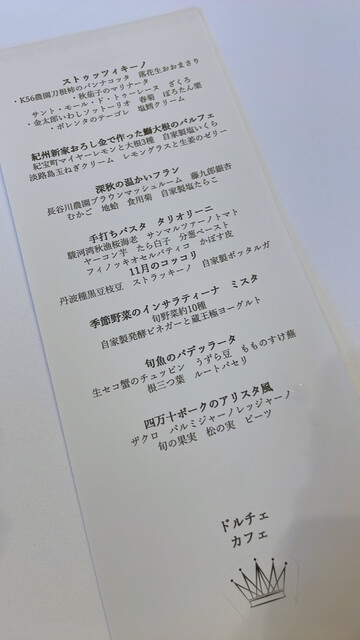 ストゥッツィキーノ
・K56農園刀根柿のパンナコッタ 落花生おおまさり
・秋茄子のマリナータ
サント・モール・ド・トゥーレーヌ ざくろ
・金太郎いわしソットーリオ 春菊 ぽろたん栗
・ポレンタのテーゴレ 塩鱈クリーム
紀州新家おろし金で作った鰤大根のパルフェ
紀宝町マイヤーレモンと大根3種 自家製塩いくら
淡路島玉ねぎクリーム レモングラスと生姜のゼリー
深秋の温かいフラン
長谷川農園ブラウンマッシュルーム 藤九郎銀杏
むかご 地蛤 食用菊 自家製塩たらこ
手打ちパスタ タリオリーニ
駿河湾秋漁桜海老 サンマルツァーノトマト
ヤーコン芋 たら白子 分葱ペースト
フィノッキオセルバティコ かぼす皮
11月のコッコリ
丹波種黒豆枝豆 ストラッキーノ 自家製ボッタルガ
季節野菜のインサラティーナ ミスタ
旬野菜約10種
自家製発酵ビネガーと蔵王極ヨーグルト
旬魚のパデッラータ
生セコ蟹のチュッピン うずら豆 もものすけ蕪
根三つ葉 ルートパセリ
四万十ポークのアリスタ風
ザクロ パルミジャーノレッジャーノ
旬の果実 松の実 ビーツ
ドルチェ
カフェ